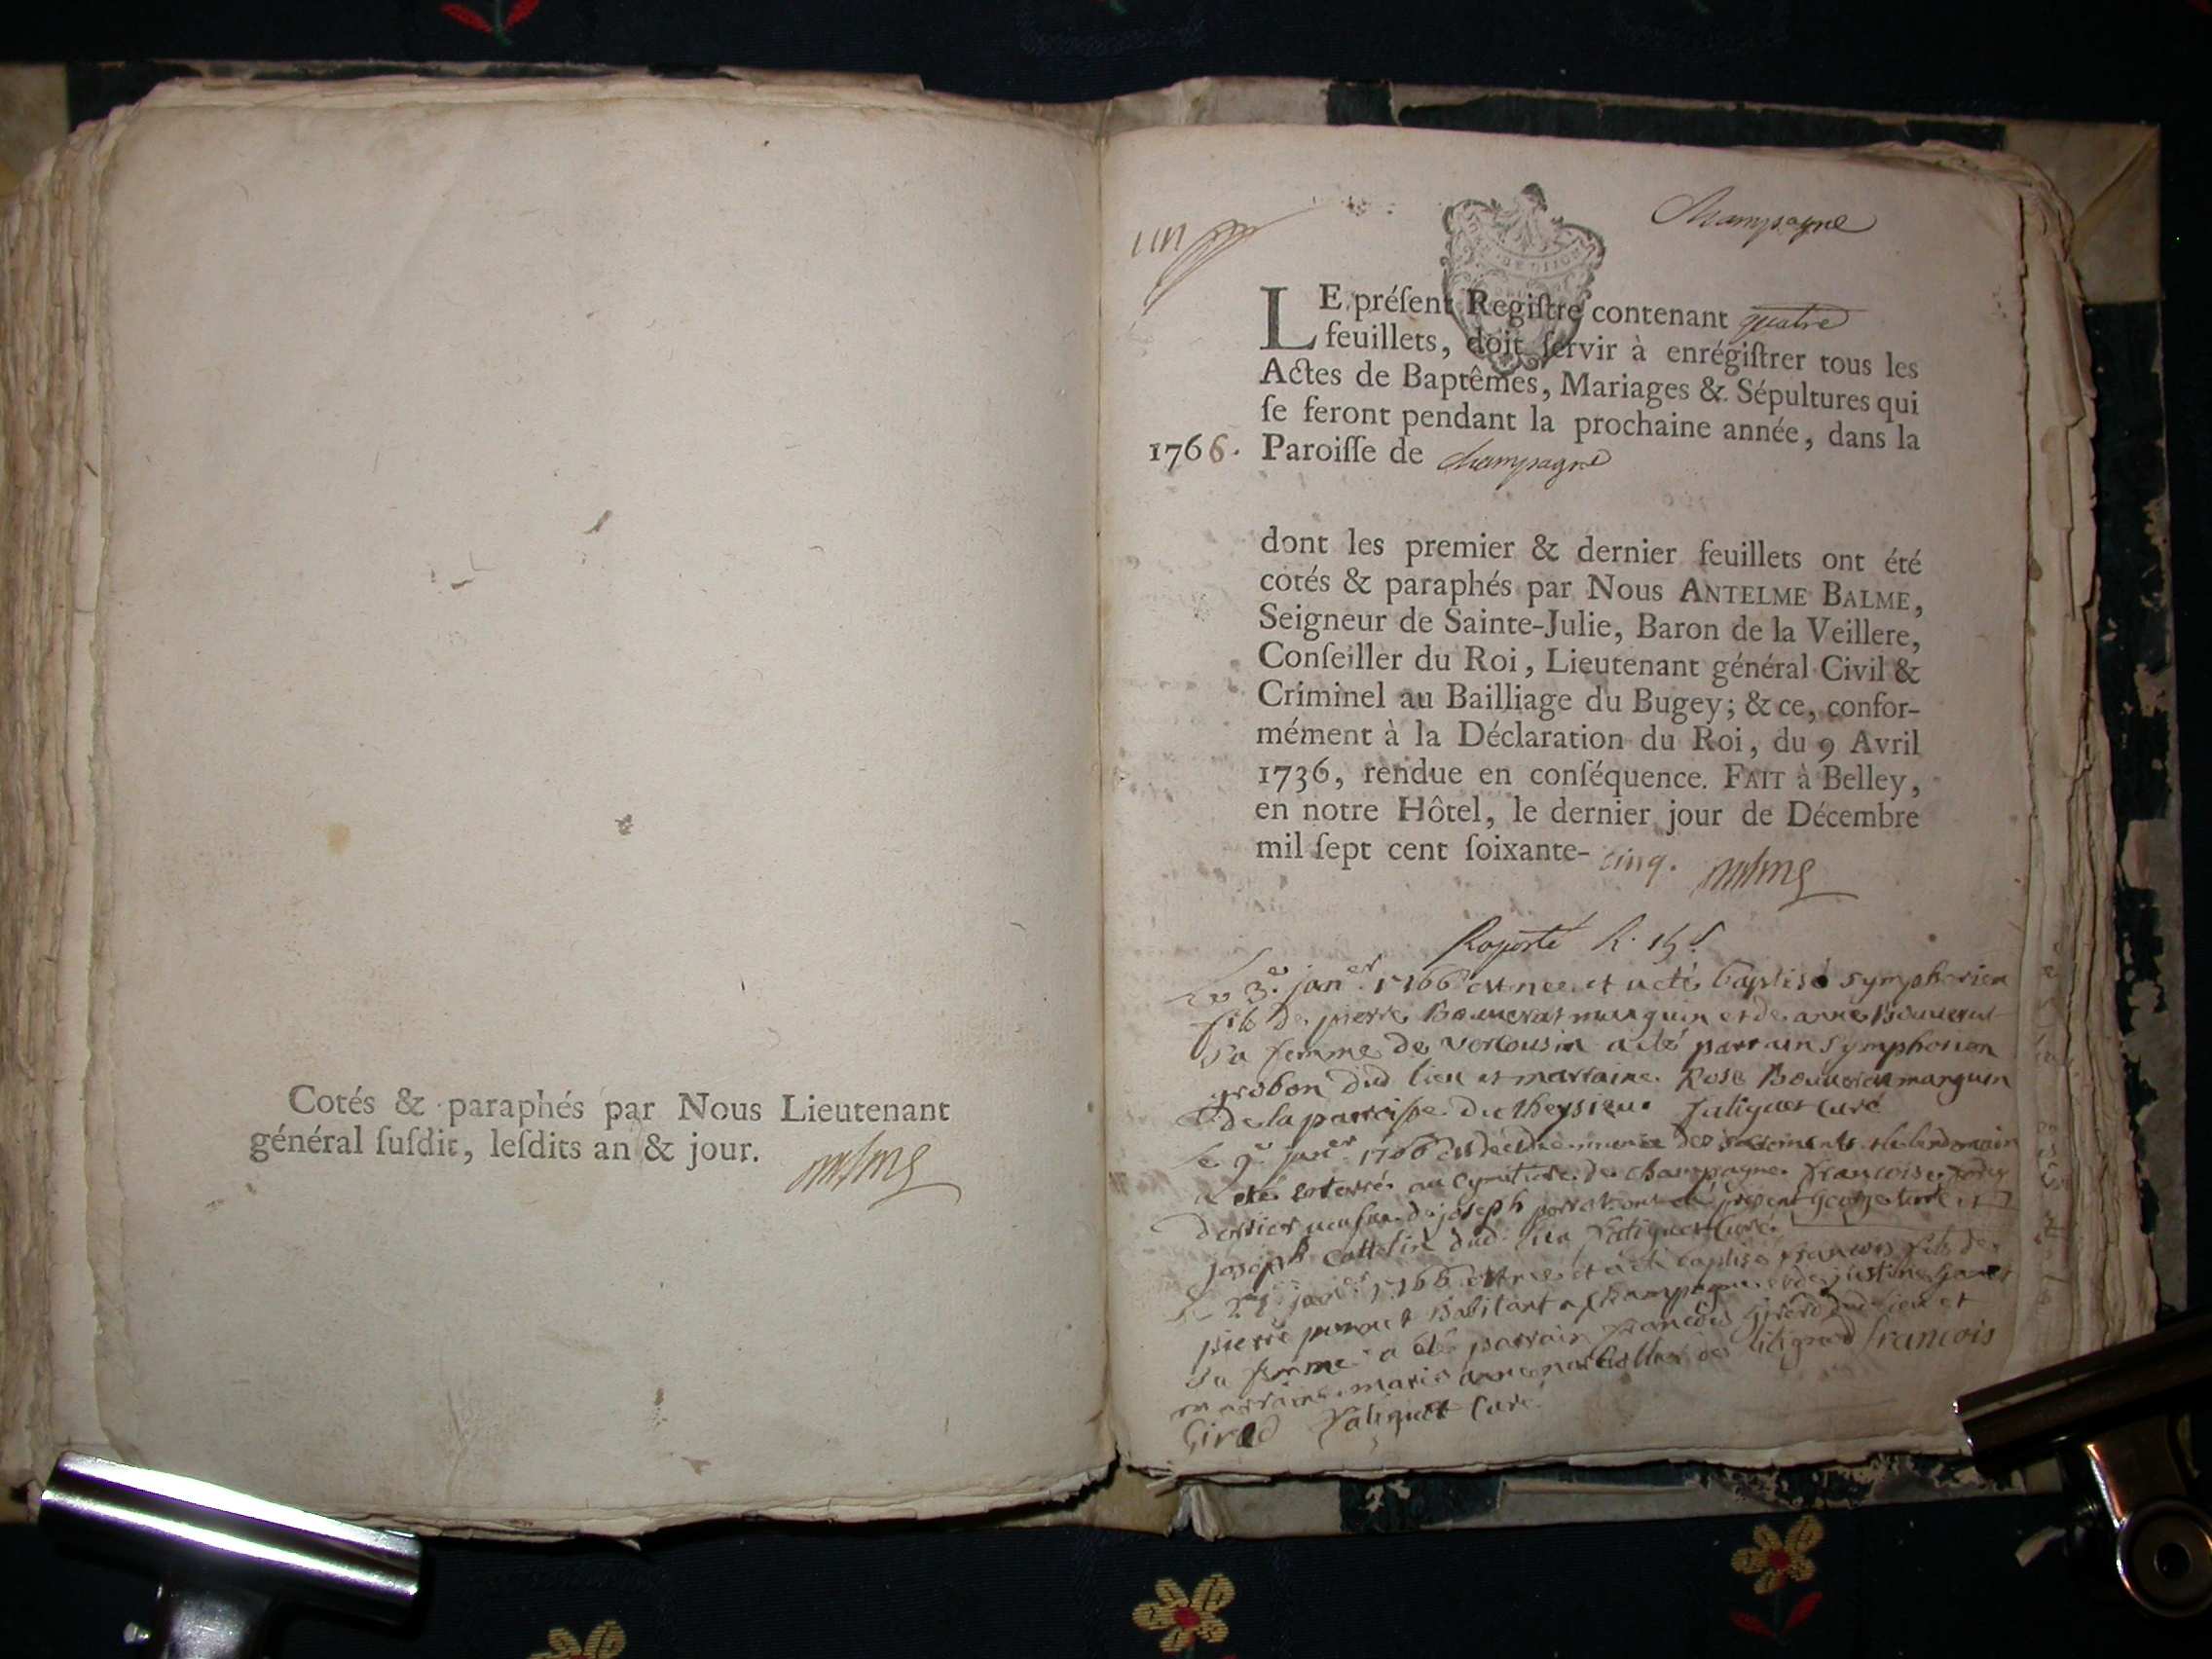 Cotés & paraphés par Nous Lieutenant
général ſuſdit, leſdits an & jour.
un
Champagne
LE préſent Regiſtre contenant quatre
feuillets, doit ſervir à enrégiſtrer tous les
Actes de Baptêmes, Mariages & Sépultures qui
ſe feront pendant la prochaine année, dans la
1766. Paroiſſe de champagne
dont les premier & dernier feuillets ont été
cotés & paraphés par Nous ANTELME BALME,
Seigneur de Sainte-Julie, Baron de la Veillere,
Conſeiller du Roi, Lieutenant général Civil &
Criminel au Bailliage du Bugey; & ce, confor-
mément à la Déclaration du Roi, du 9 Avril
1736, rendue en conſéquence. FAIT à Belley,
en notre Hôtel, le dernier jour de Décembre
mil ſept cent ſoixante-cinq.
Raporté
Le 3e janer 1766 est nee et a eté baptisé Symphorien
fils de pierre Bouverat manguin et de anne Bouverat
Sa femme de a eté parrain Symphorien
grobon dud lieu et marraine Rose Bouverat manguin
De la parroisse du cheysieu faliguet curé
Le 9e janer 1766 est décédée munie des sacrements et le lendemain
a eté enterré au cymitiere de champagne francoise
derrier de joseph present george et
joseph cottelin dud lieu faliguet Curé
janer 1766 est nee et a eté baptisé francois fils de
pierre habitant a champagne et de justine
Sa femme a eté parrain francois girerd dud lieu et
marraine marie anne de lilignod francois
Girerd faliguet Curé